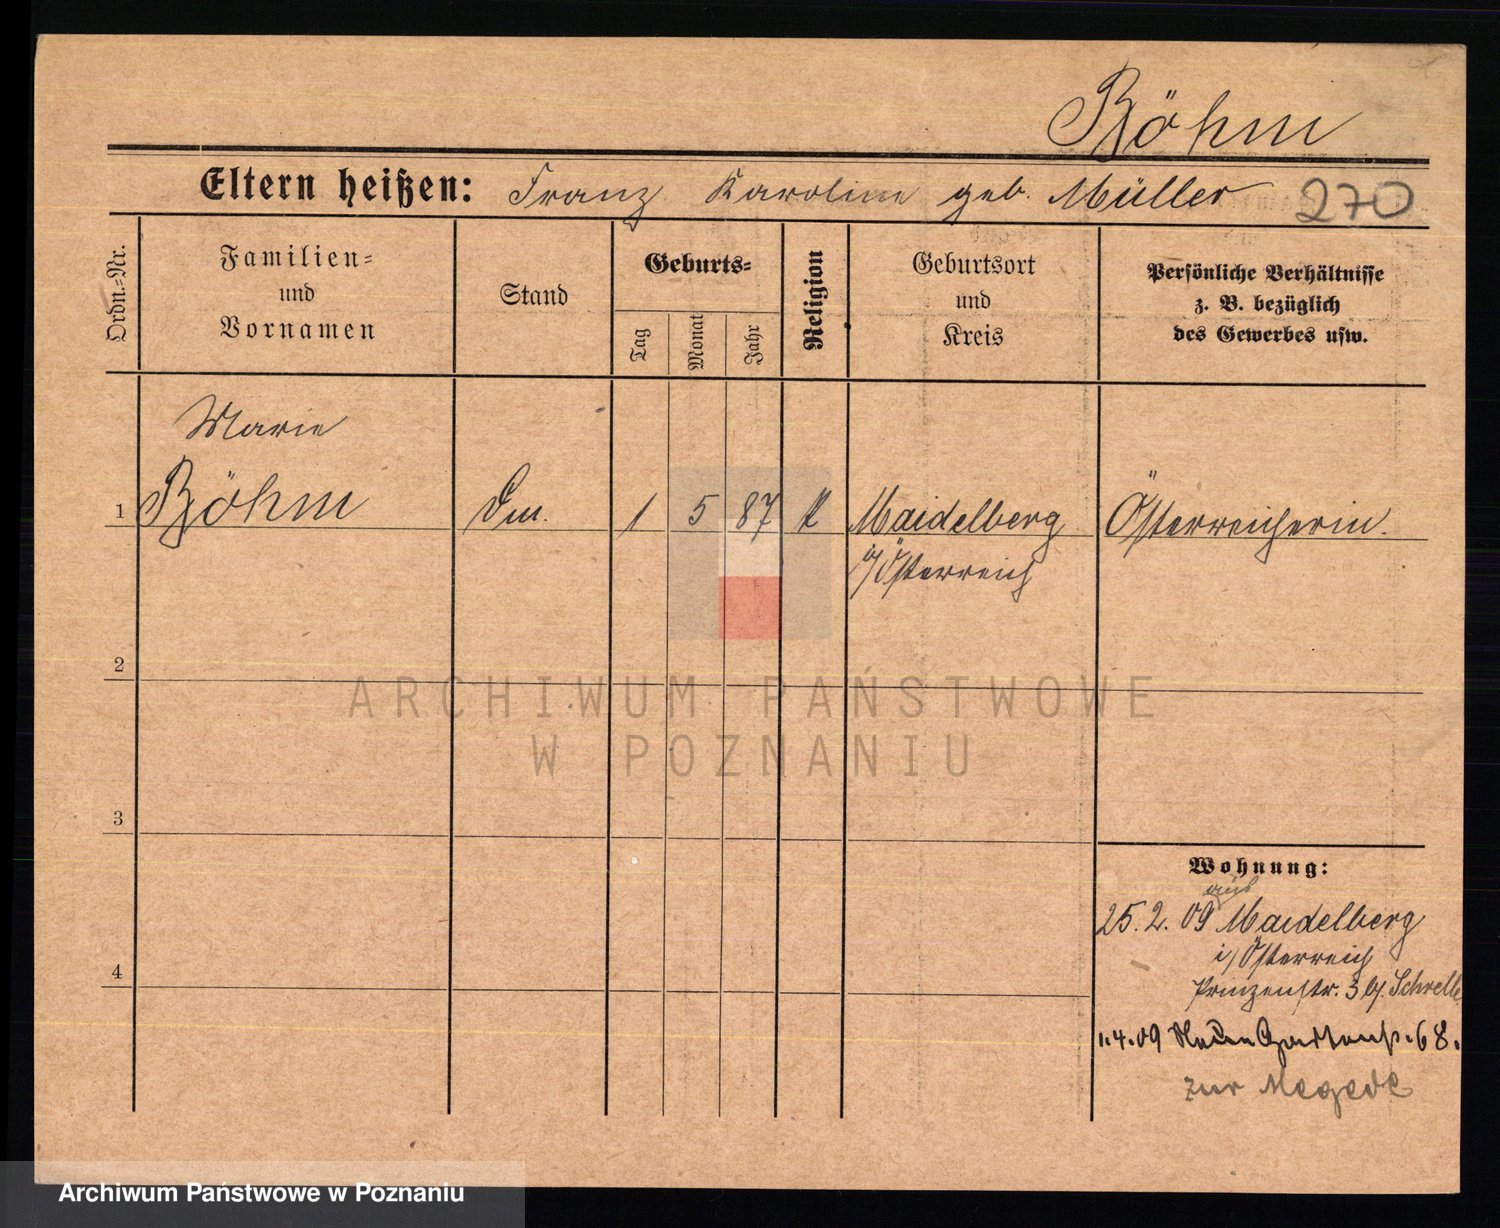 Böhm
Eltern heißen: Franz Karoline geb. Müller 270
Ordn.-Nr.
Familien- und Vornamen
Stand
Geburts-
Tag
Monat
Jahr
Religion
Geburtsort und Kreis
Persönliche Verhältnisse z. B. bezüglich des Gewerbes usw.
Marie
1 Böhm 1 5 87 k Maidelberg Österreicherin.
Österreich
2
3
4
Wohnung:
aus
25. 2. 09 Maidelberg
i/Österreich
Prinzenstr. 3
1.4.09 68.
zur Megede
ARCHIWUM PAŃSTWOWE
W POZNANIU
Archiwum Państwowe w Poznaniu